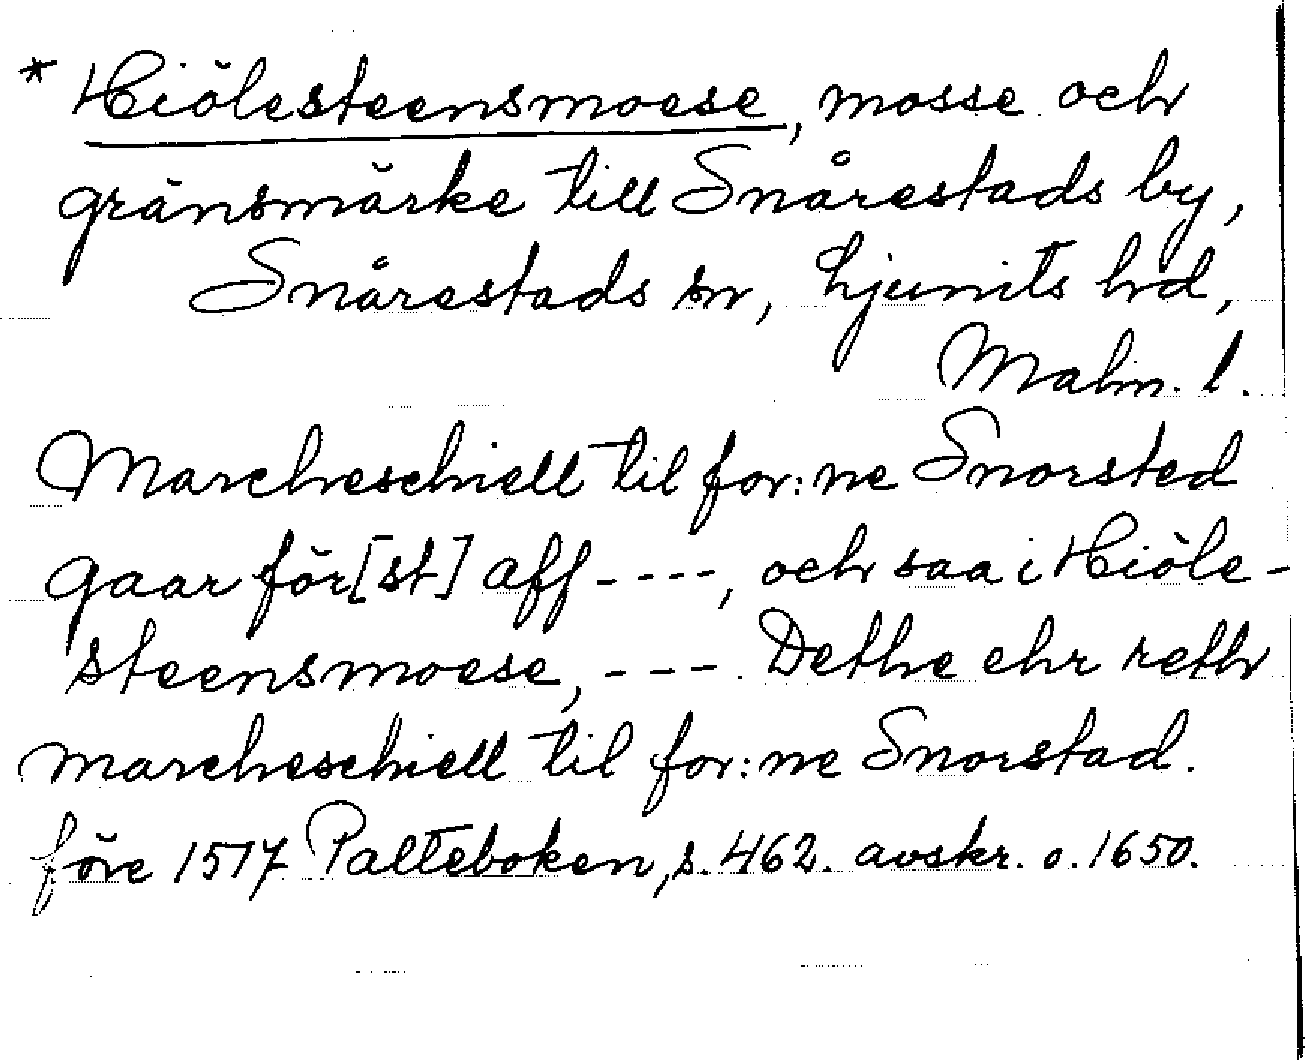 * Hiölesteensmoese, mosse och
gränsmärke till Snårestads by,
Snårestads sn, Ljunits hd,
Malm. l.
Marcheschiell til for:ne Snorsted
gaar för[st] aff ----, och saa i Hiöle-
steensmoese, --- . Dethe ehr reth
marcheschiell til for:ne Snorstad.
före 1517 Palteboken, s. 462. avskr. o. 1650.